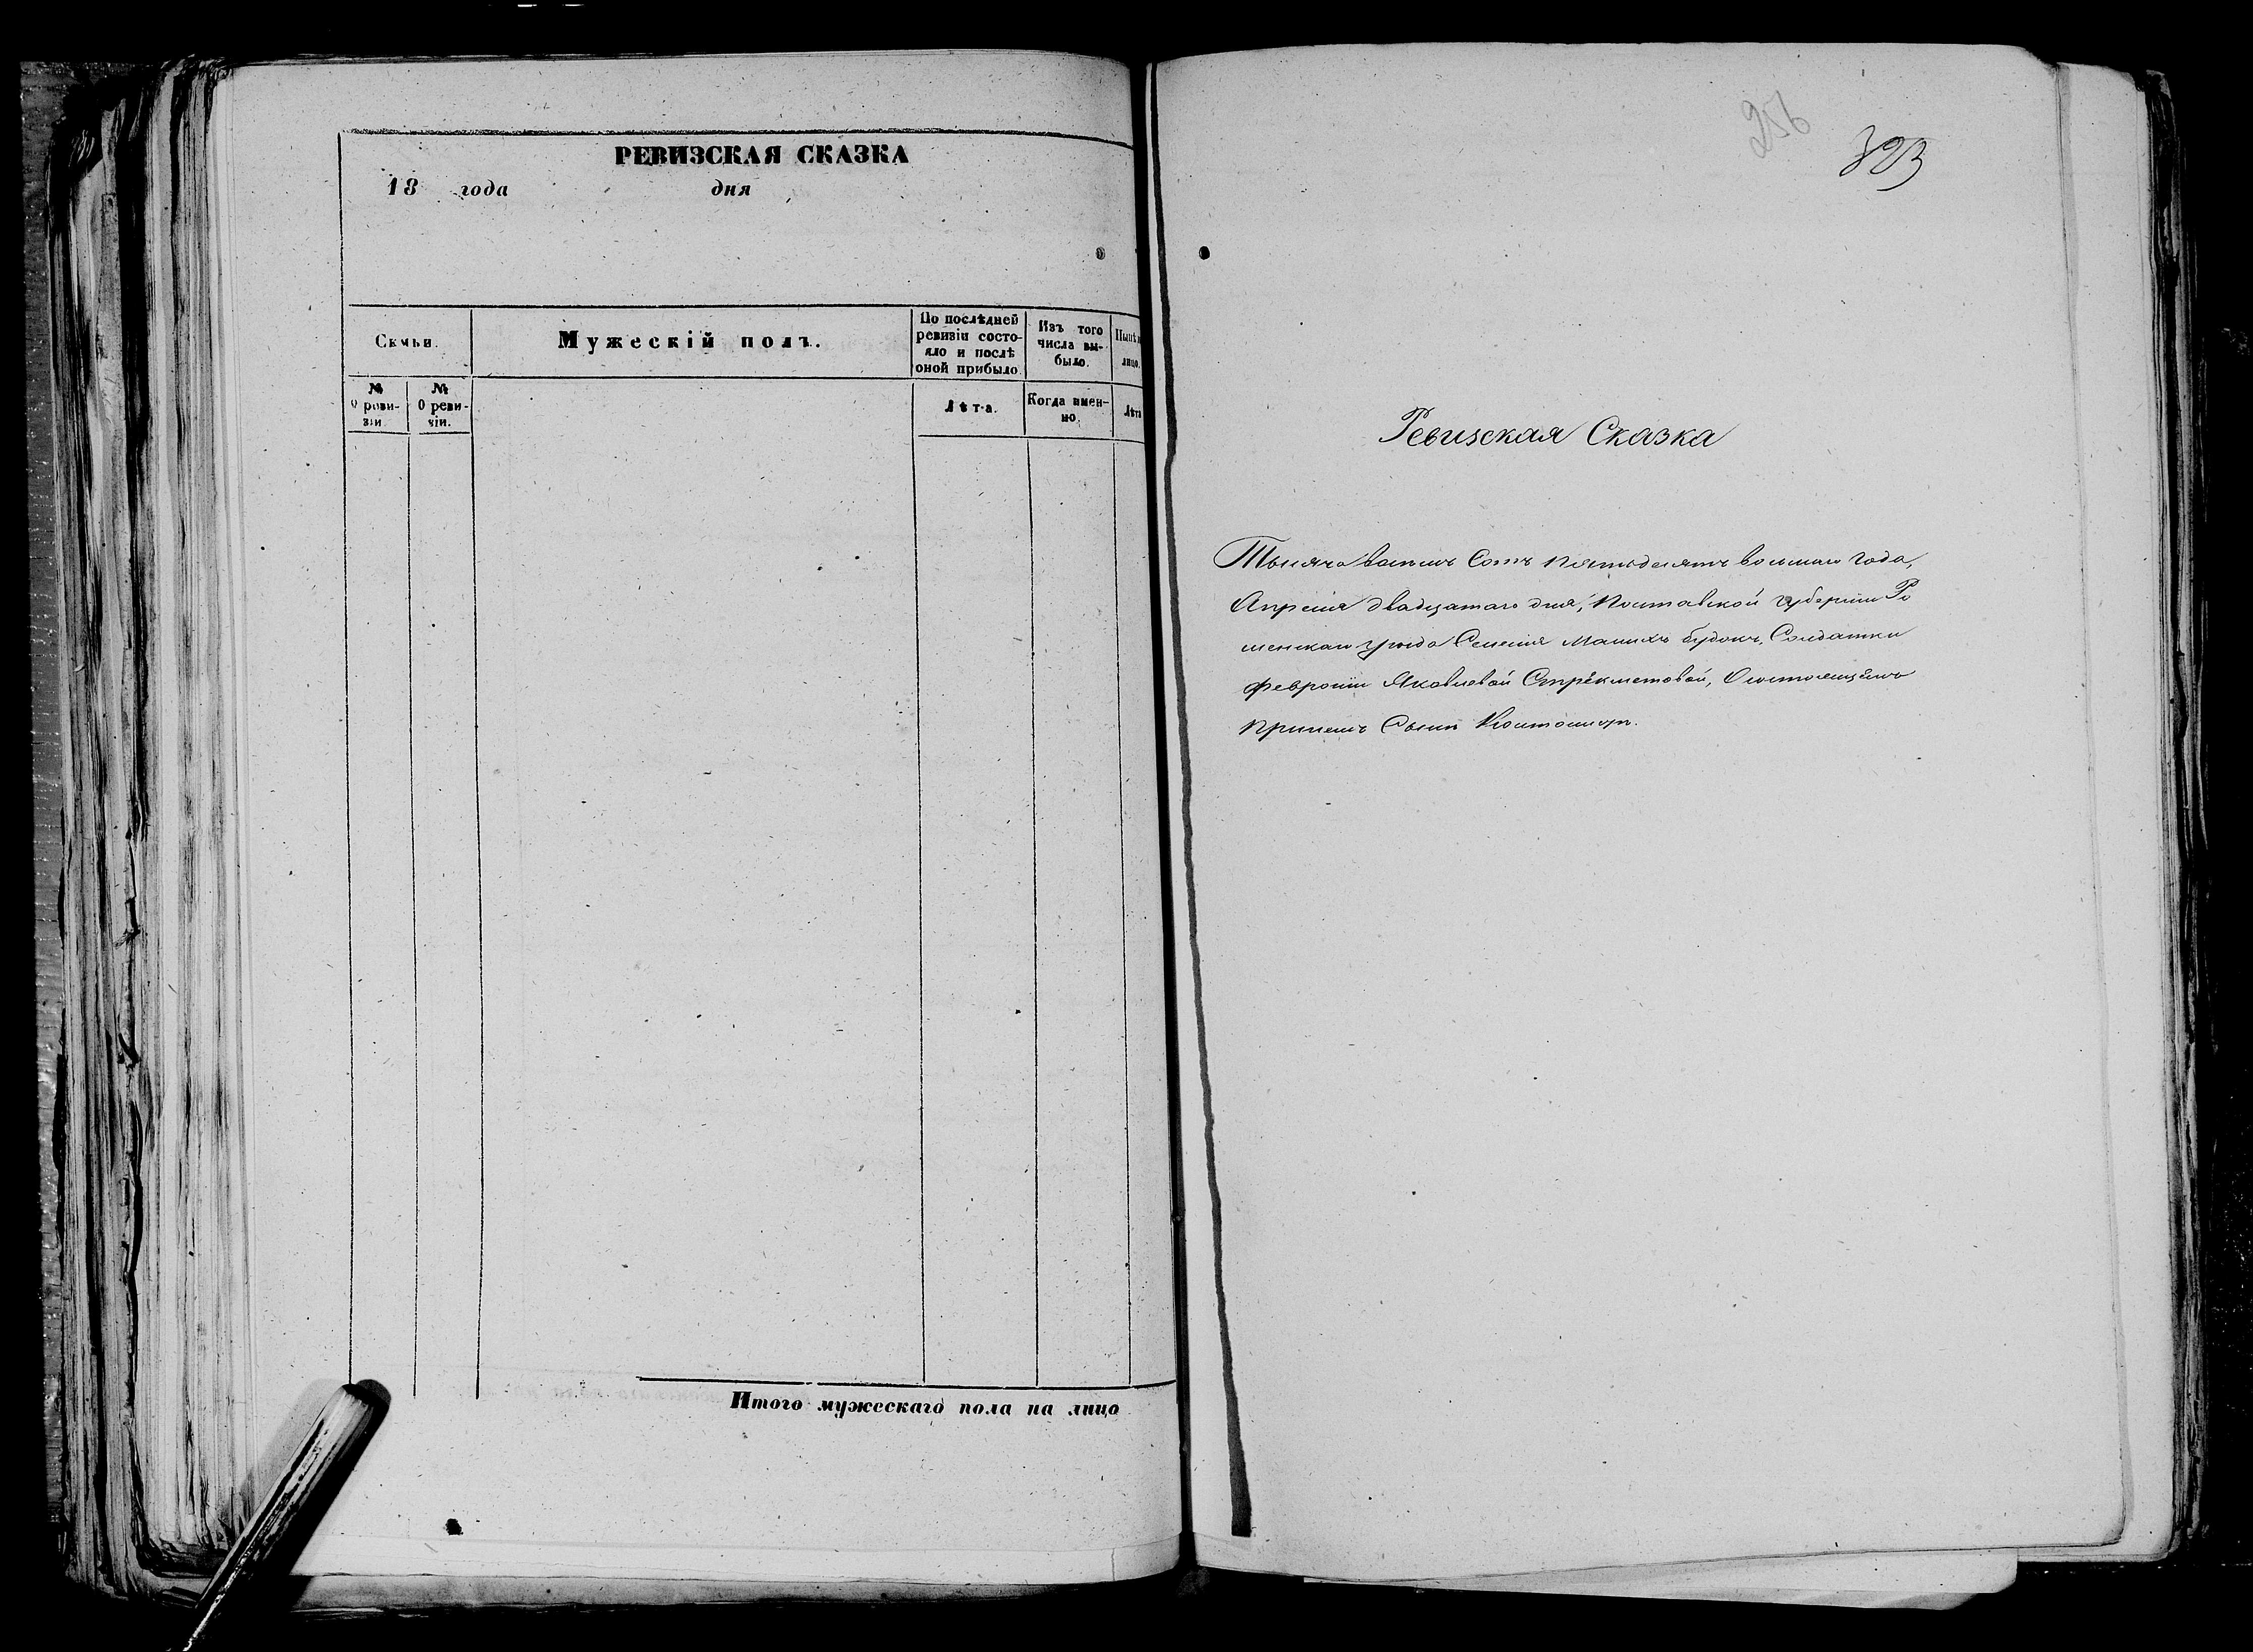 РЕВИЗСКАЯ СКАЗКА
18 года дня
Семьи.
Мужескій полъ.
По послѣдней ревизіи состо-
яло и послѣ
оной прибыло.
Изъ того
числа вы-
было.
лицо.
№
ревизіи.
№
0 реви-
зіи.
Лѣта.
Когда имен-
но.
Лѣта
Итого мужескаго пола на лицо
256
323
Ревизская Сказка
Тысяча восемь Сотъ пятьдесятъ восьмаго года,
Апреля двадцатаго дня, Полтавской губерніи Ро
менскаго уѣзда Селенія Малихъ будокъ, Солдатки
Февроніи Яковлевой Стрекметовой, О состоящемъ
При ней Сынѣ